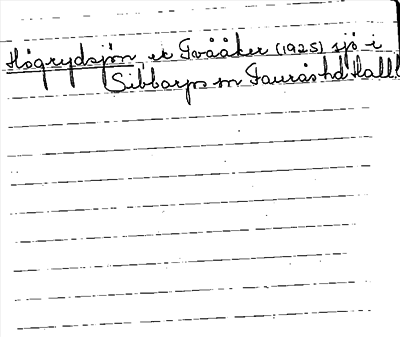 Högrydsjön, er Tvååker (1925) sjö i
Sibbarps sn Faurås hd Hall